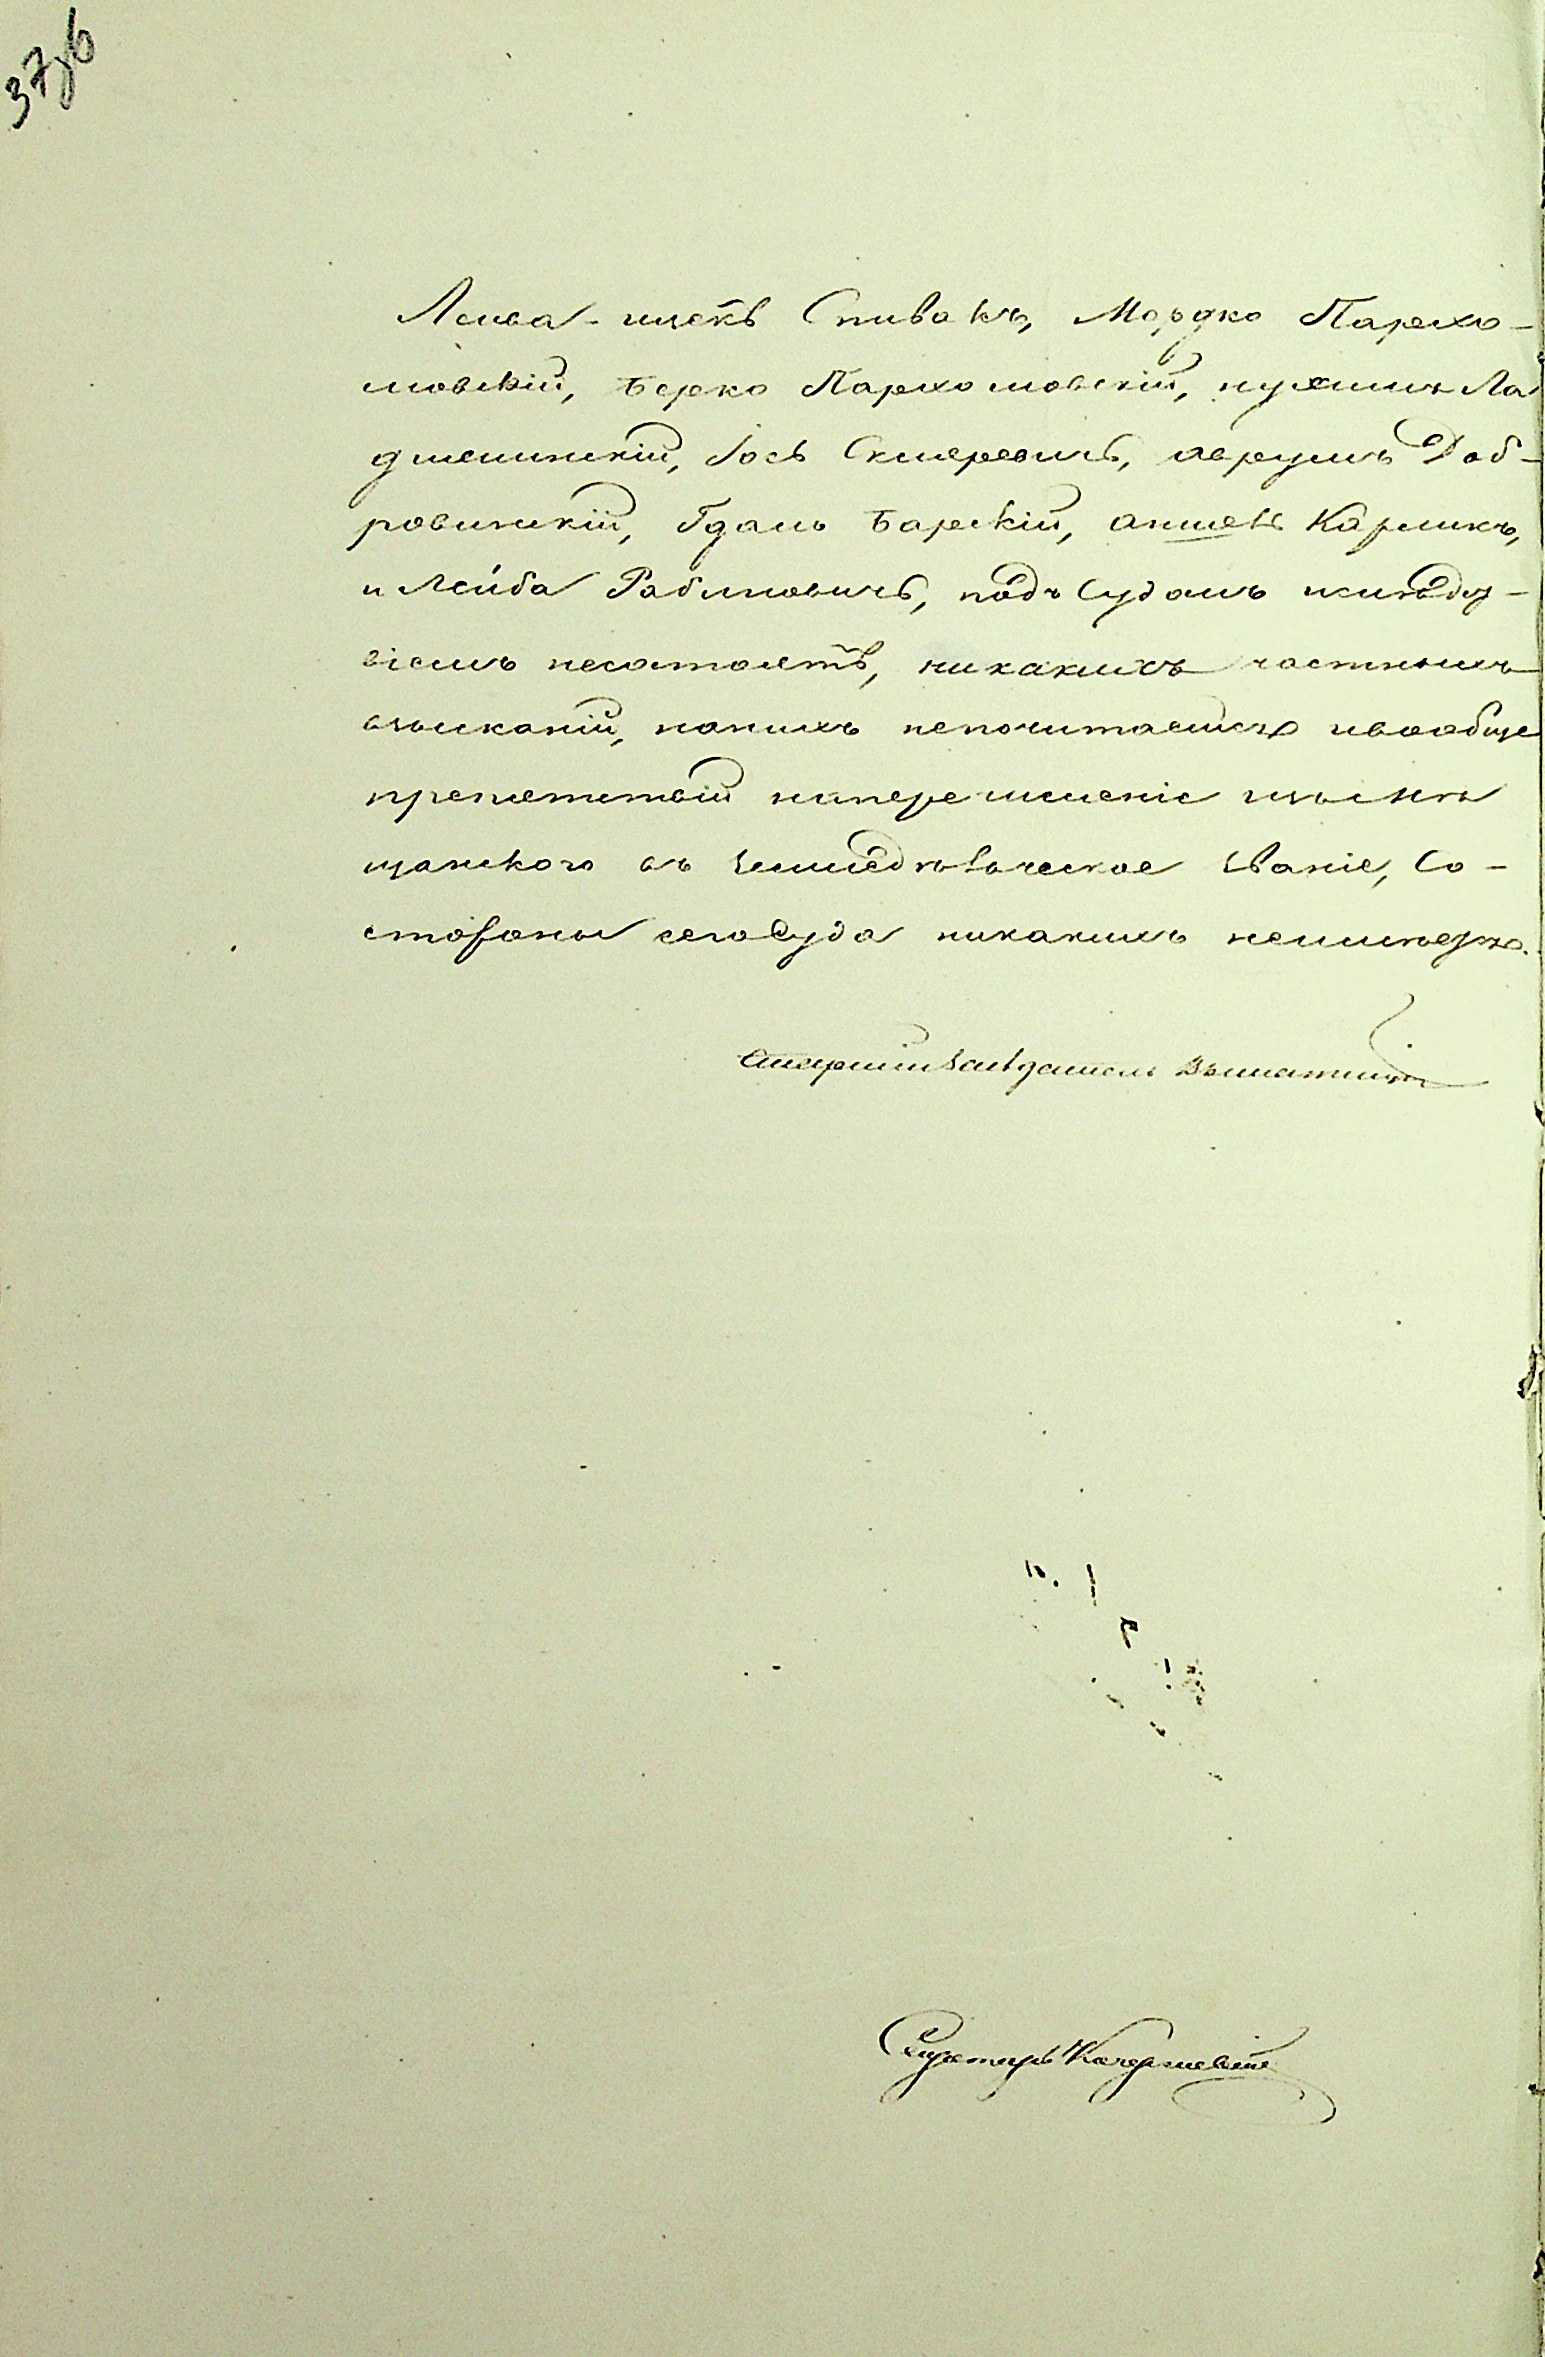 37об
Лейба-ицекъ Спивакъ, Мордко Пархо-
мовскій, Берко Пархомовскій, нухимъ Ла
дыженскій, Іось Склеревичъ, аврумъ Доб-
ровинскій, Гдаль Барскій, аншель Карликъ,
и Лейба Рабиновичъ, подъ Судомъ ислѣд-
віемъ несостоятъ, никакихъ частныхъ
взысканій, нанихъ непочитаеться ивообще
препятствій наперечисленіе изъмѣ
щанского въ земледѣльческое званіе, Со-
стороны сегосуда никакихъ неимѣется.
Старшій Засѣдатель
Секретарь